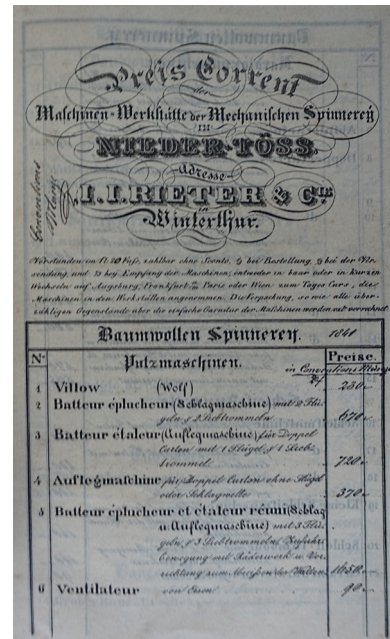 Preis Corrent
der
Maschinen-Werkstätte der Mechanischen Spinnereÿ
IN
NIEDER-TÖSS.
Adresse
J. J. RIETER & Cie
Winterthur.
Verstanden im fl. 20 Fuss, zahlbar ohne Sconto, ⅓ bei Bestellung, ⅓ bei der Ver-
sendung, und ⅓ beÿ Empfang der Maschinen, entweder in baar oder in kurzen
Wechseln auf Augsburg, Frankfurt a/m Paris oder Wien zum Tages Curs, die
Maschinen in den Werkstätten angenommen. Die Verpackung, so wie alle über-
zähligen Gegenstände über die einfache Garnitur der Maschinen werden ext. verrechnet
Baumwollen Spinnereÿ. 1841
No. Putzmaschinen. Preise.
in Conventions
1 Villow (Wolf) 250
2 Batteur éplucheur (Schlagmaschine) mit 2 Flü-
geln & 2 Siebtrommeln 670
3 Batteur étaleur (Auflegmaschine) für Doppel
Carton mit 1 Flügel & 1 Sieb-
trommel 720
4 Auflegmaschine für Doppel Carton ohne Flügel
oder Schlagwelle 370
5 Batteur éplucheur et étaleur réuni (Schlag
u. Auflegmaschine) mit 3 Flü-
geln & 3 Siebtrommeln, Zufuhr-
bewegung mit Räderwerk u. Vor-
richtung zum Abreißen der Watten 1650
6 Ventilateur von Eisen 90